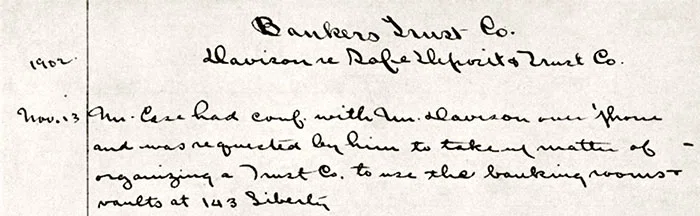 Bankers Trust Co.
Davison re Safe Deposit & Trust Co.
1902.
Nov. 13 Mr. Case had conf. with Mr. Davison over 'phone
and was requested by him to take up matter of -
organizing a Trust Co. to use the banking rooms &
vaults at 143 Liberty